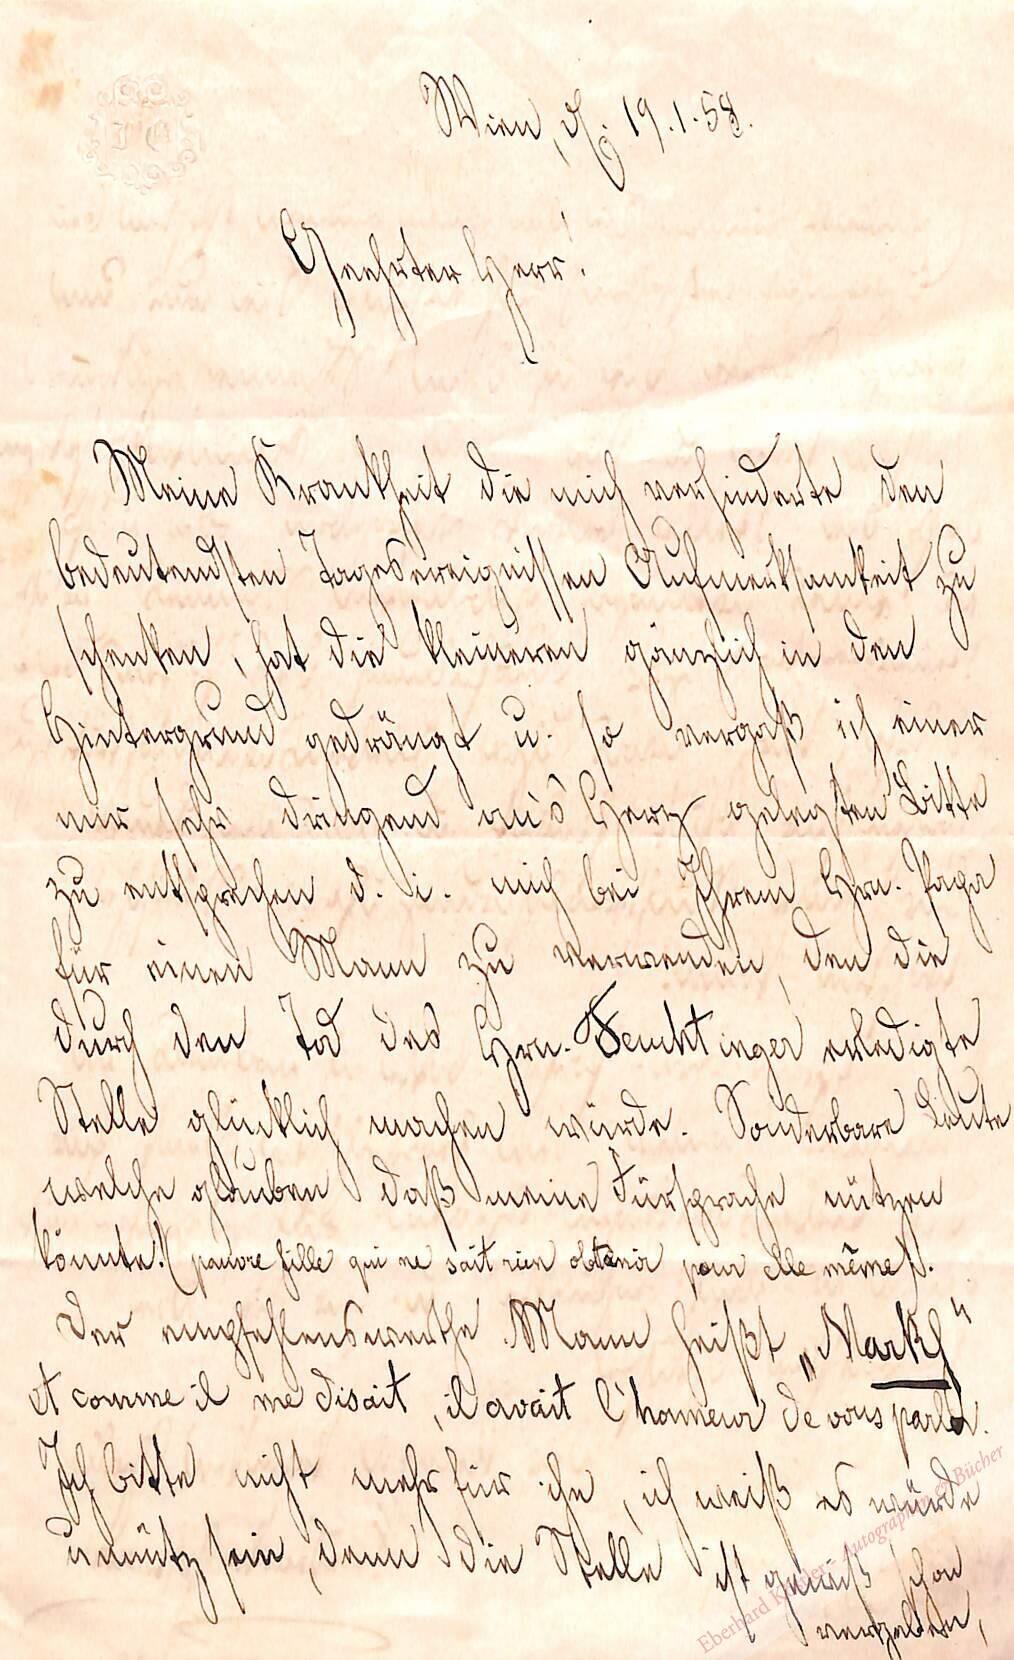 Wien, d. 19.1.58.
Geehrter Herr!
Meine Krankheit die mich verhinderte den
bedeutendsten Tagesereignissen Aufmerksamkeit zu
schenken, hat die kleineren gänzlich in den
Hintergrund gedrängt u. so vergaß ich einer
mir sehr dringend an's Herz gelegten Bitte
zu entsprechen d. i. mich bei Ihrem Hrn. Papa
für einen Mann zu verwenden, den die
durch den Tod des Hrn. Feuchtinger erledigte
Stelle glücklich machen würde. Sonderbare Leute
welche glauben daß meine Fürsprache nützen
könnte! (pauvre fille qui ne sait rien obtenir pour elle même).
Der empfehlenswerthe Mann heißt „Markl"
et comme il me disait, il avait l'honneur de vous parler.
Ich bitte nicht mehr für ihn, ich weiß es würde
unnütz sein, denn die Stelle ist gewiß schon
vergeben,
Eberhard Köstler Autographen & Bücher